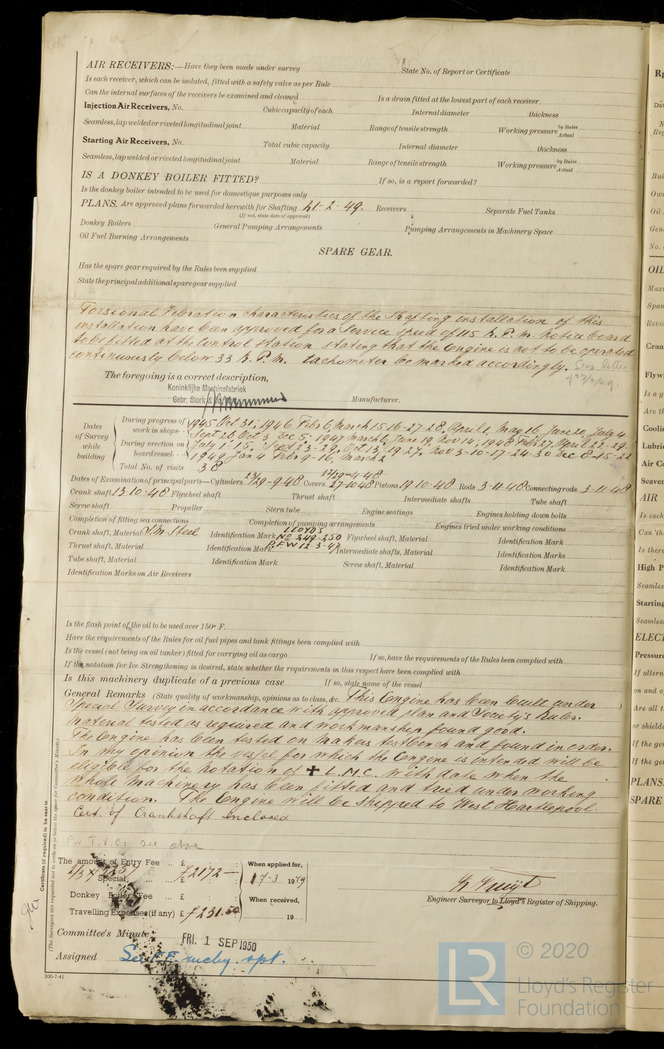 AIR RECEIVERS:—Have they been made under survey State No. of Report or Certificate
Is each receiver, which can be isolated, fitted with a safety valve as per Rule
Can the internal surfaces of the receivers be examined and cleaned Is a drain fitted at the lowest part of each receiver
Injection Air Receivers, No. Cubic capacity of each Internal diameter thickness
Seamless, lap welded or riveted longitudinal joint Material Range of tensile strength Working pressure by Rules Actual
Starting Air Receivers, No. Total cubic capacity Internal diameter thickness
Seamless, lap welded or riveted longitudinal joint Material Range of tensile strength Working pressure by Rules Actual
IS A DONKEY BOILER FITTED? If so, is a report forwarded?
Is the donkey boiler intended to be used for domestic purposes only
PLANS. Are approved plans forwarded herewith for Shafting 21-2-49. Receivers Separate Fuel Tanks
(If not, state date of approval)
Donkey Boilers General Pumping Arrangements Pumping Arrangements in Machinery Space
Oil Fuel Burning Arrangements
SPARE GEAR.
Has the spare gear required by the Rules been supplied
State the principal additional spare gear supplied
Torsional Vibration characteristics of the Shafting installation of this
installation have been approved for a Service speed of 115 R.P.M. notice board
to be fitted at the control station stating that the Engine is not to be operated
continuously below 33 R.P.M. tachometer be marked accordingly.
The foregoing is a correct description,
Koninklijke Machinefabriek
Gebr. Stork & Manufacturer.
Dates of Survey while building
During progress of work in shops 1945 Oct 31, 1946 Feb 6, March 15-16-27-28, April 1, May 16, June 20, July 4
Sept 26, Oct 3, Dec 5, 1947 March 6, June 19, Nov 14, 1948 Feb 27, April 22-29
During erection on board vessel July 1-15, Sept 23-29, Oct 13, 19-27, Nov 3-10-17-24-30 Dec 8-15-22
1949 Jan 4 Feb 9-16, March 2
Total No. of visits 38
Dates of Examination of principal parts—Cylinders 29-9-48 Covers 27-10-48 Pistons 19-10-48 Rods 3-11-48 Connecting rods 3-11-48
Crank shaft 13-10-48 Flywheel shaft Thrust shaft Intermediate shafts Tube shaft
Screw shaft Propeller Stern tube Engine seatings Engines holding down bolts
Completion of fitting sea connections Completion of pumping arrangements Engines tried under working conditions
Crank shaft, Material S.M. Steel Identification Mark LLOYDS No 249-250 Flywheel shaft, Material Identification Mark
Thrust shaft, Material Identification Mark P.F.W 12-3-47 Intermediate shafts, Material Identification Marks
Tube shaft, Material Identification Mark Screw shaft, Material Identification Mark
Identification Marks on Air Receivers
Is the flash point of the oil to be used over 150° F.
Have the requirements of the Rules for oil fuel pipes and tank fittings been complied with
Is the vessel (not being an oil tanker) fitted for carrying oil as cargo If so, have the requirements of the Rules been complied with
If the notation for Ice Strengthening is desired, state whether the requirements in this respect have been complied with
Is this machinery duplicate of a previous case If so, state name of the vessel
General Remarks (State quality of workmanship, opinions as to class, &c. This Engine has been built under
Special Survey in accordance with approved plan and Society's Rules.
Material tested as required and workmanship found good.
The Engine has been tested on makers testbench and found in order.
In my opinion the vessel for which the Engine is intended will be
eligible for the notation of ✠ L.M.C. with date when the
whole machinery has been fitted and tried under working
condition. The Engine will be shipped to West Hartlepool.
Cert. of Crankshaft Enclosed
For T.V.C. see above
The amount of Entry Fee £ When applied for,
Special £2172— 17-3-1949
Donkey Boiler Fee £ When received,
Travelling Expenses (if any) £ 231.50 19
Engineer Surveyor to Lloyd's Register of Shipping.
Committee's Minute FRI. 1 SEP 1950
Assigned See F.E. mchy. rpt.
© 2020
LR
Lloyd's Register
Foundation